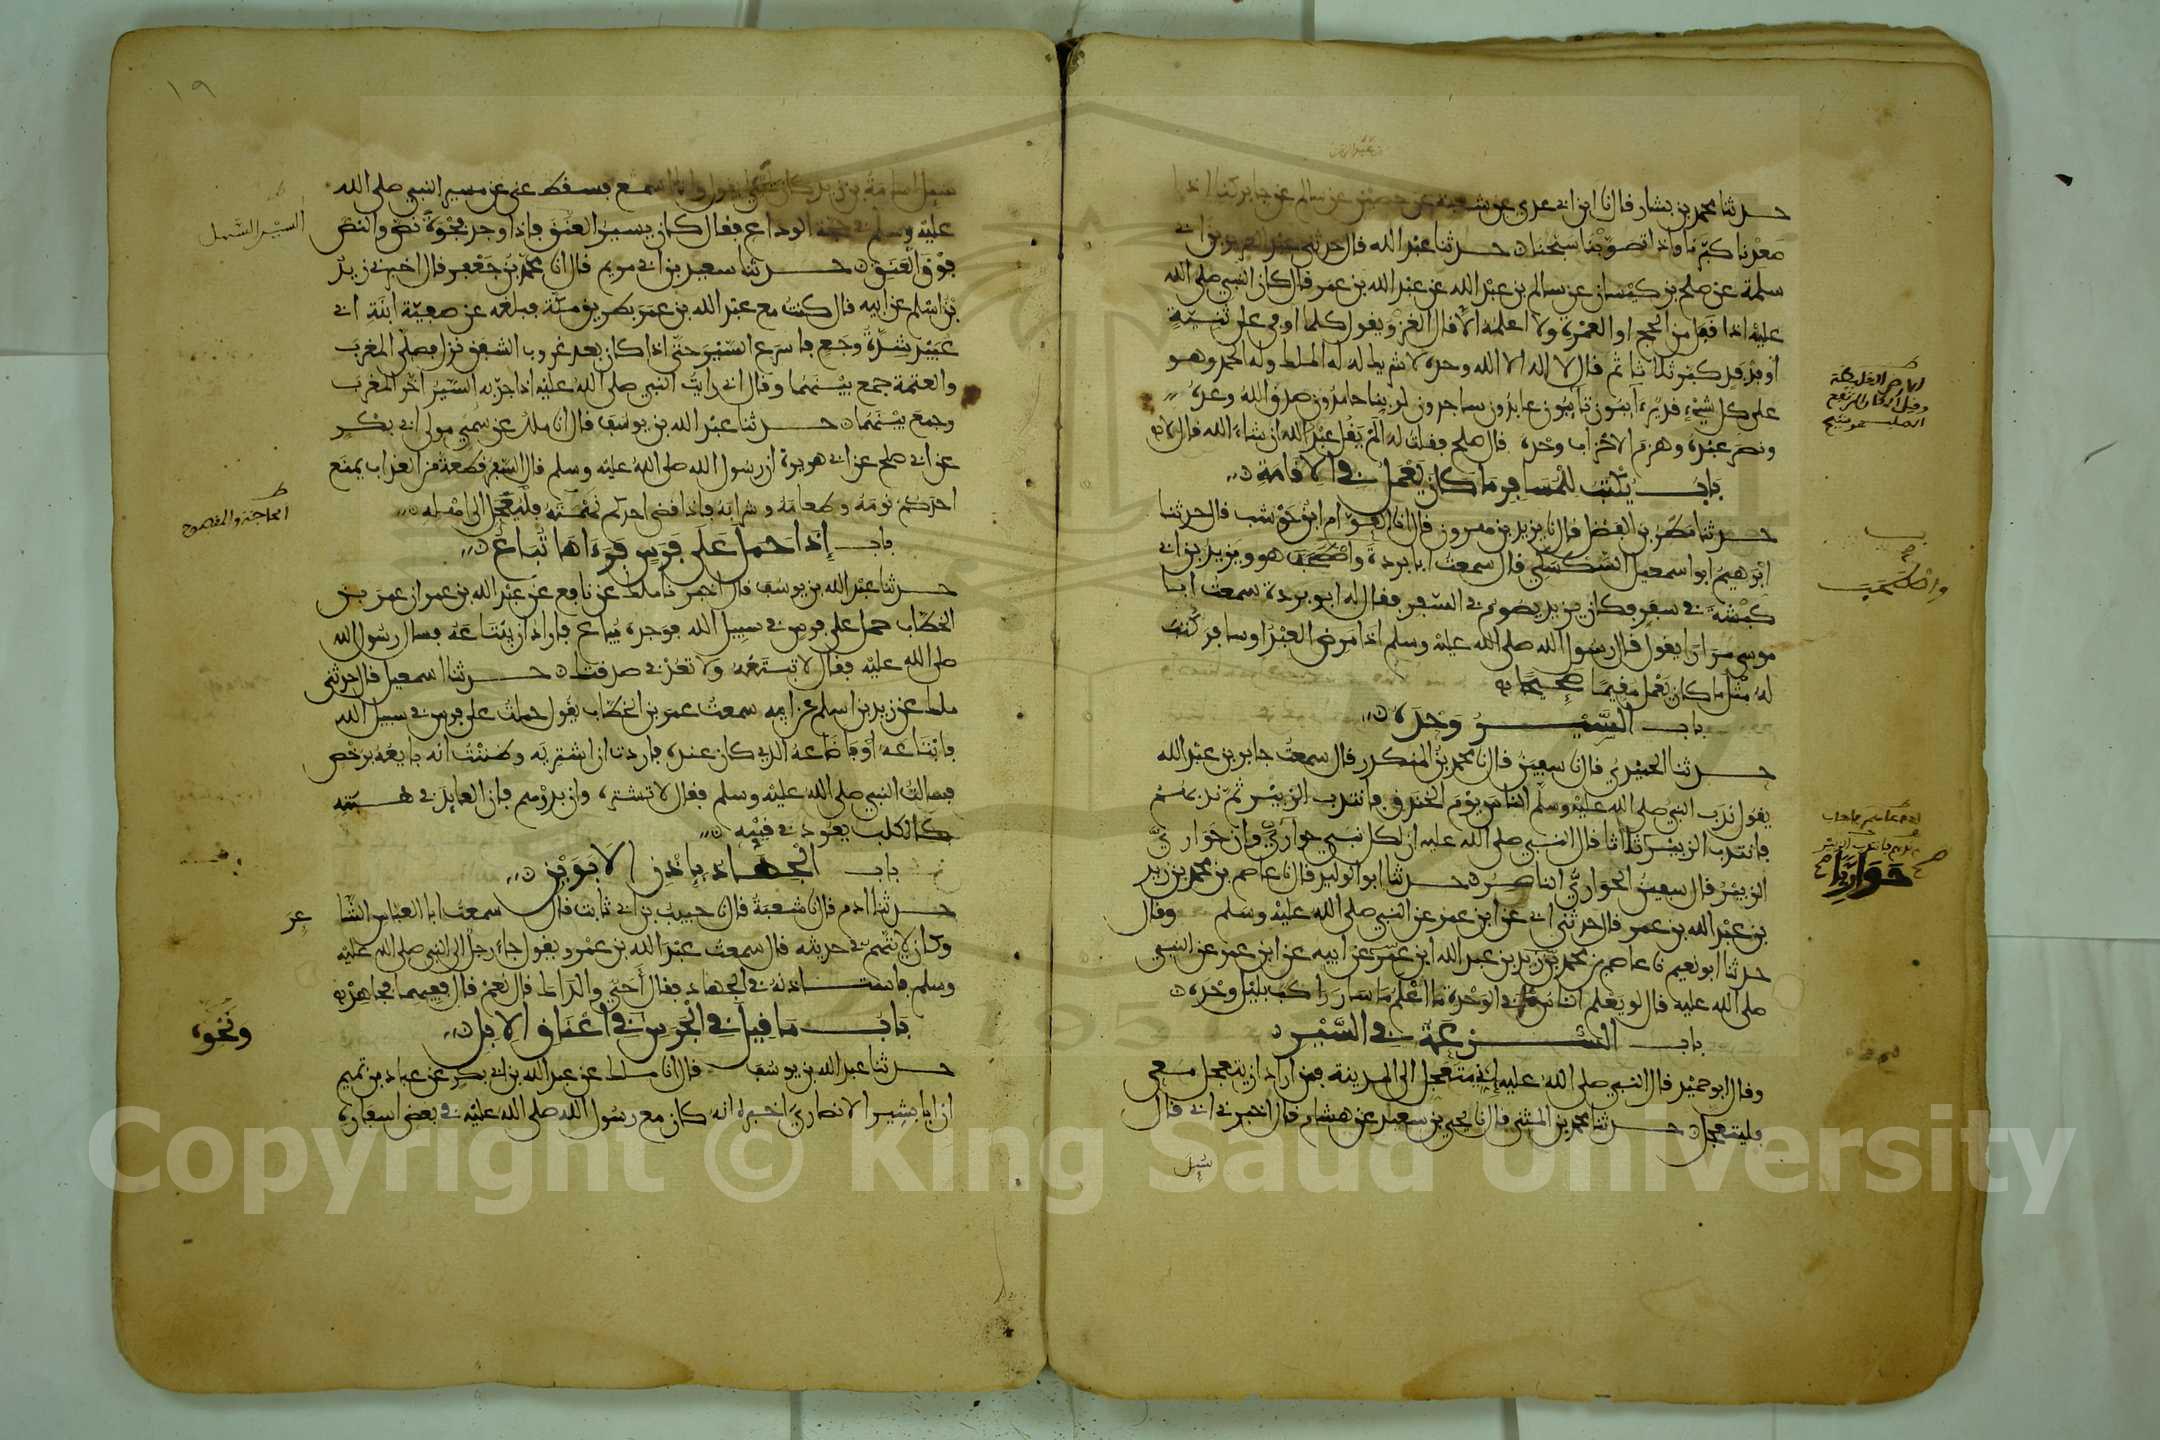 حدثنا محمد بن بشار قال نا ابن ابي عدي عن شعبة عن حصين عن سالم عن جابر كنا اذا
صعدنا كبرنا واذا تصوبنا سبحنا حدثنا عبد الله قال حدثني عبد العزيز بن ابي
سلمة عن صلح بن كيسان عن سالم بن عبد الله عن عبد الله بن عمر قال كان النبي صلى الله
عليه اذا قفل من الحج او العمرة ولا اعلمه الا قال الغزو يقول كلما اوفى على ثنية
او فدفد كبر ثلاثا ثم قال لا اله الا الله وحده لا شريك له له الملك وله الحمد وهو
على كل شيء قدير ءايبون تايبون عابدون ساجدون لربنا حامدون صدق الله وعده
ونصر عبده وهزم الاحزاب وحده قال صلح فقلت له الم يقل عبد الله ان شاء الله قال لا
باب يكتب للمسافر ما كان يعمل في الاقامة
حدثنا مطر بن الفضل قال نا يزيد بن هرون قال انا العوام ابن حوشب قال حدثنا
ابرهيم ابو اسمعيل السكسكي قال سمعت ابا بردة واصطحب هو ويزيد بن ابي
كبشة في سفر فكان يزيد يصوم في السفر فقال له ابو بردة سمعت ابا
موسى مرارا يقول قال رسول الله صلى الله عليه وسلم اذا مرض العبد او سافر كتب
له مثل ما كان يعمل مقيما صحيحا
باب السير وحده
حدثنا الحميدي قال نا سفين قال نا محمد بن المنكدر قال سمعت جابر بن عبد الله
يقول ندب النبي صلى الله عليه وسلم الناس يوم الخندق فانتدب الزبير ثم ندبهم
فانتدب الزبير ثلاثا قال النبي صلى الله عليه ان لكل نبي حواري وان حواري
الزبير قال سفين الحواري الناصر حدثنا ابو الوليد قال نا عاصم بن محمد بن زيد
بن عبد الله بن عمر قال حدثني ابي عن ابن عمر عن النبي صلى الله عليه وسلم وقال
حدثنا ابو نعيم نا عاصم بن محمد بن زيد بن عبد الله ابن عمر عن ابيه عن ابن عمر عن النبي
صلى الله عليه قال لو يعلم الناس ما في الوحدة ما اعلم ما سار راكب بليل وحده
باب السرعة في السير
وقال ابو حميد قال النبي صلى الله عليه اني متعجل الى المدينة فمن اراد ان يتعجل معي
فليتعجل حدثنا محمد بن المثنى قال نا يحيى بن سعيد عن هشام قال اخبرني ابي قال
سيل
حواريا
١٩
سيل اسامة بن زيد كان يحيى يقول وانا اسمع فسقط عني عن مسير النبي صلى الله
عليه وسلم في حجة الوداع فقال كان يسير العنق فاذا وجد فجوة نص والنص
فوق العنق حدثنا سعيد بن ابي مريم قال انا محمد بن جعفر قال اخبرني زيد
بن اسلم عن ابيه قال كنت مع عبد الله بن عمر بطريق مكة فبلغه عن صفية ابنة ابي
عبيد شدة وجع فاسرع السير حتى اذا كان بعد غروب الشفق نزل فصلى المغرب
والعتمة جمع بينهما وقال اني رايت النبي صلى الله عليه اذا جد به السير اخر المغرب
وجمع بينهما حدثنا عبد الله بن يوسف قال انا ملك عن سمي مولى ابي بكر
عن ابي صلح عن ابي هريرة ان رسول الله صلى الله عليه وسلم قال السفر قطعة من العذاب يمنع
احدكم نومه وطعامه وشرابه فاذا قضى احدكم نهمته فليعجل الى اهله
باب إذا حمل على فرس فرءاها تباع
حدثنا عبد الله بن يوسف قال اخبرنا ملك عن نافع عن عبد الله بن عمر ان عمر بن
الخطاب حمل على فرس في سبيل الله فوجده يباع فاراد ان يبتاعه فسال رسول الله
صلى الله عليه فقال لا تبتعه ولا تعد في صدقتك حدثنا اسمعيل قال حدثني
ملك عن زيد بن اسلم عن ابيه سمعت عمر بن الخطاب يقول حملت على فرس في سبيل الله
فابتاعه او فاضاعه الذي كان عنده فاردت ان اشتريه وظننت انه بايعه برخص
فسالت النبي صلى الله عليه وسلم فقال لا تشتره وان بدرهم فان العايد في هبته
كالكلب يعود في قيئه
باب الجهاد بإذن الابوين
حدثنا ادم قال نا شعبة قال نا حبيب بن ابي ثابت قال سمعت ابا العباس الشاعر
وكان لا يتهم في حديثه قال سمعت عبد الله بن عمرو يقول جاء رجل الى النبي صلى الله عليه
وسلم فاستاذنه في الجهاد فقال أحي والداك قال نعم قال ففيهما فجاهد
باب ما قيل في الجرس في أعناق الابل
حدثنا عبد الله بن يوسف قال انا ملك عن عبد الله بن ابي بكر عن عباد بن تميم
ان ابا بشير الانصاري اخبره انه كان مع رسول الله صلى الله عليه في بعض اسفاره
السير السهل
الحاجة والمقصود
ونحوه
Copyright © King Saud University
1957